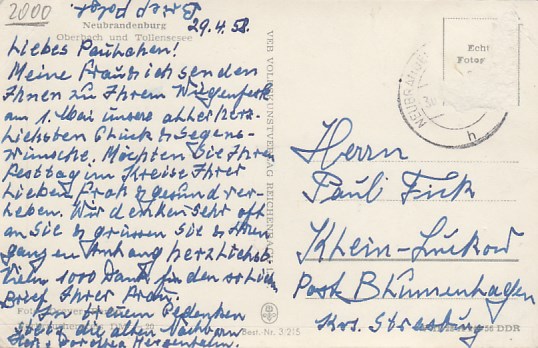 2000
Neubrandenburg
Oberbach und Tollensesee
29.4.58.
Liebes Paulchen!
Meine Frau u. ich senden
Ihnen zu Ihrem Wiegenfeste
am 1. Mai unsere allerherz-
lichsten Glück- & Segens-
wünsche. Möchten Sie Ihren
Festtag im Kreise Ihrer
Lieben froh & gesund ver-
leben. Wir denken sehr oft
an Sie & grüssen Sie & Ihren
ganzen Anhang herzlichst.
Viele 1000 Dank für den
Brief Ihrer Frau.
In treuem Gedenken
stets die alten Nachbarn
VEB VOLKSKUNSTVERLAG REICHENBACH
Best. Nr. 3/215
Echt
Foto
NEUBRANDEN
h
Herrn
Paul Fick
Klein-Luckow
Post Blumenhagen
Krs. Strasburg
DDR